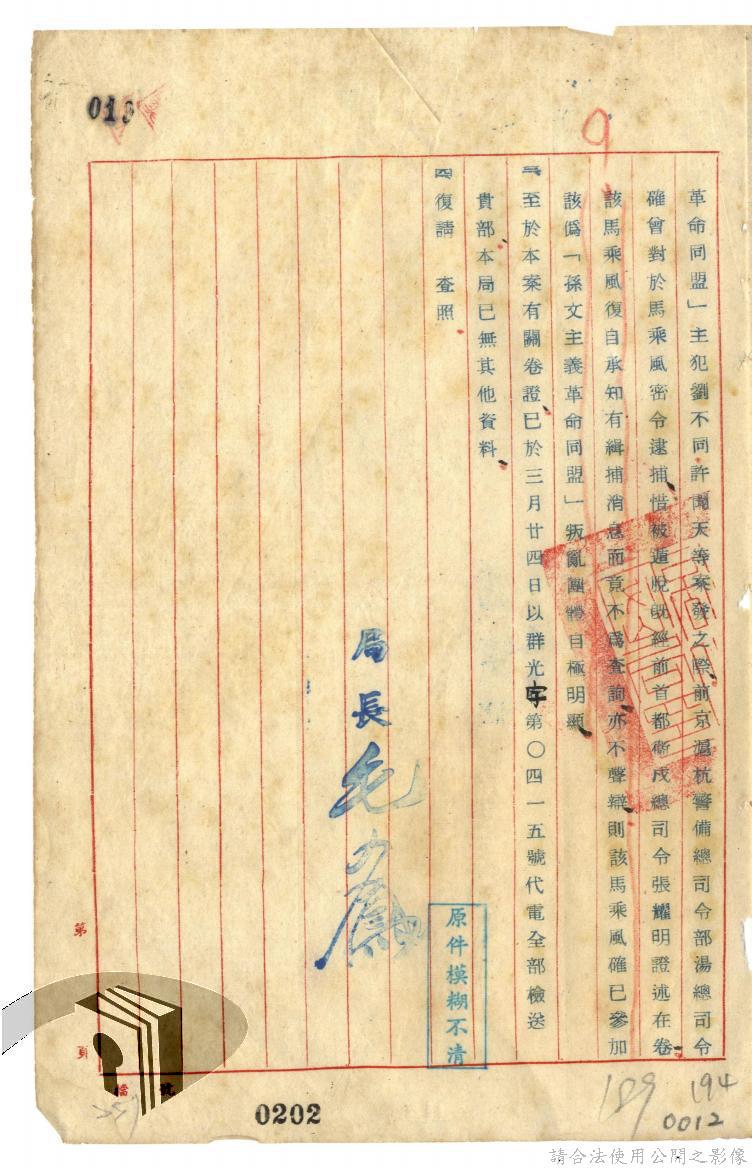 013
9
革命同盟」主犯劉不同許聞天等案發之際前京滬杭警備總司令部湯總司令
確曾對於馬乘風密令逮捕惜被遁脫旣經前首都衞戍總司令張耀明證述在卷
該馬乘風復自承知有緝捕消息而竟不爲查詢亦不聲辯則該馬乘風確已參加
該僞「孫文主義革命同盟」叛亂團體自極明顯
至於本案有關卷證已於三月廿四日以群光字第〇四一五號代電全部檢送
貴部本局已無其他資料
四復請 查照
局長毛
原件模糊不清
第
頁
檔 號
0202
189
194
0012
請合法使用公開之影像